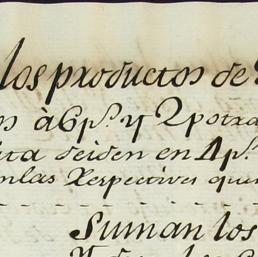 los productos de
os à 6p.s y 2 potra
ata seiden en 4p.s
en las Respectivas qui
Suman los